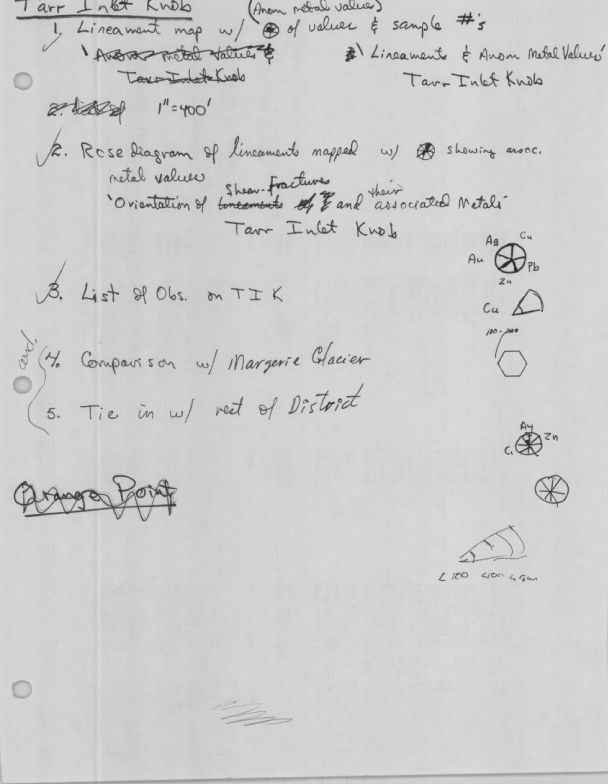 Tarr Inlet Knob
(Anom metal values)
1. Lineament map w/ of values & sample #'s
'Anom metal values &
Tarr Inlet Knob
'Lineaments & Anom Metal Values'
Tarr Inlet Knob
2. 1"=400'
2. Rose diagram of lineaments mapped w/ showing assoc.
metal values
'Orientation of lineaments Shear-Fractures and their associated Metals'
Tarr Inlet Knob
Ag Cu
Au Pb
Zn
3. List of Obs. on TIK
Cu
100-1000
4. Comparison w/ Margerie Glacier
5. Tie in w/ rest of District
Ag Zn
Orange Point
< 100